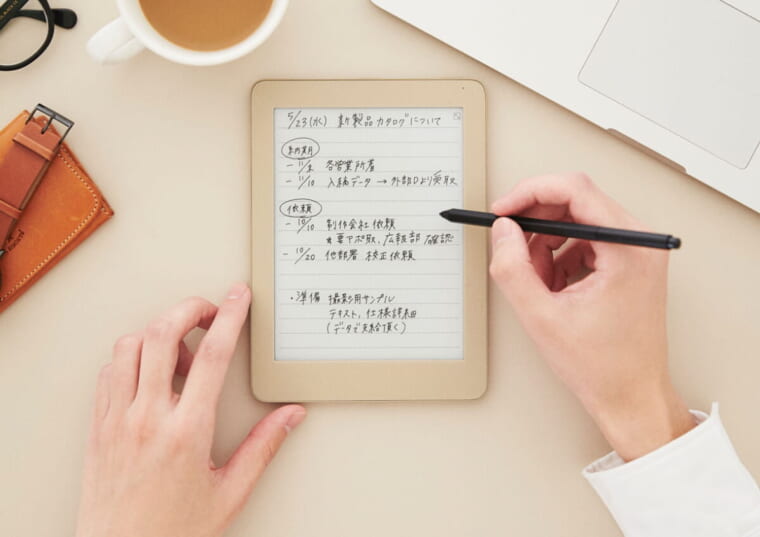 5/23(水) 新製品カタログについて
納期
- 11/1 各営業所着
- 11/10 入稿データ → 外部Dより受取
依頼
- 10/10 制作会社依頼
* 要アポ取, 広報部 確認
- 10/20 他部署 校正依頼
・準備 撮影用サンプル
テキスト, 仕様詳細
(データで支給頂く)